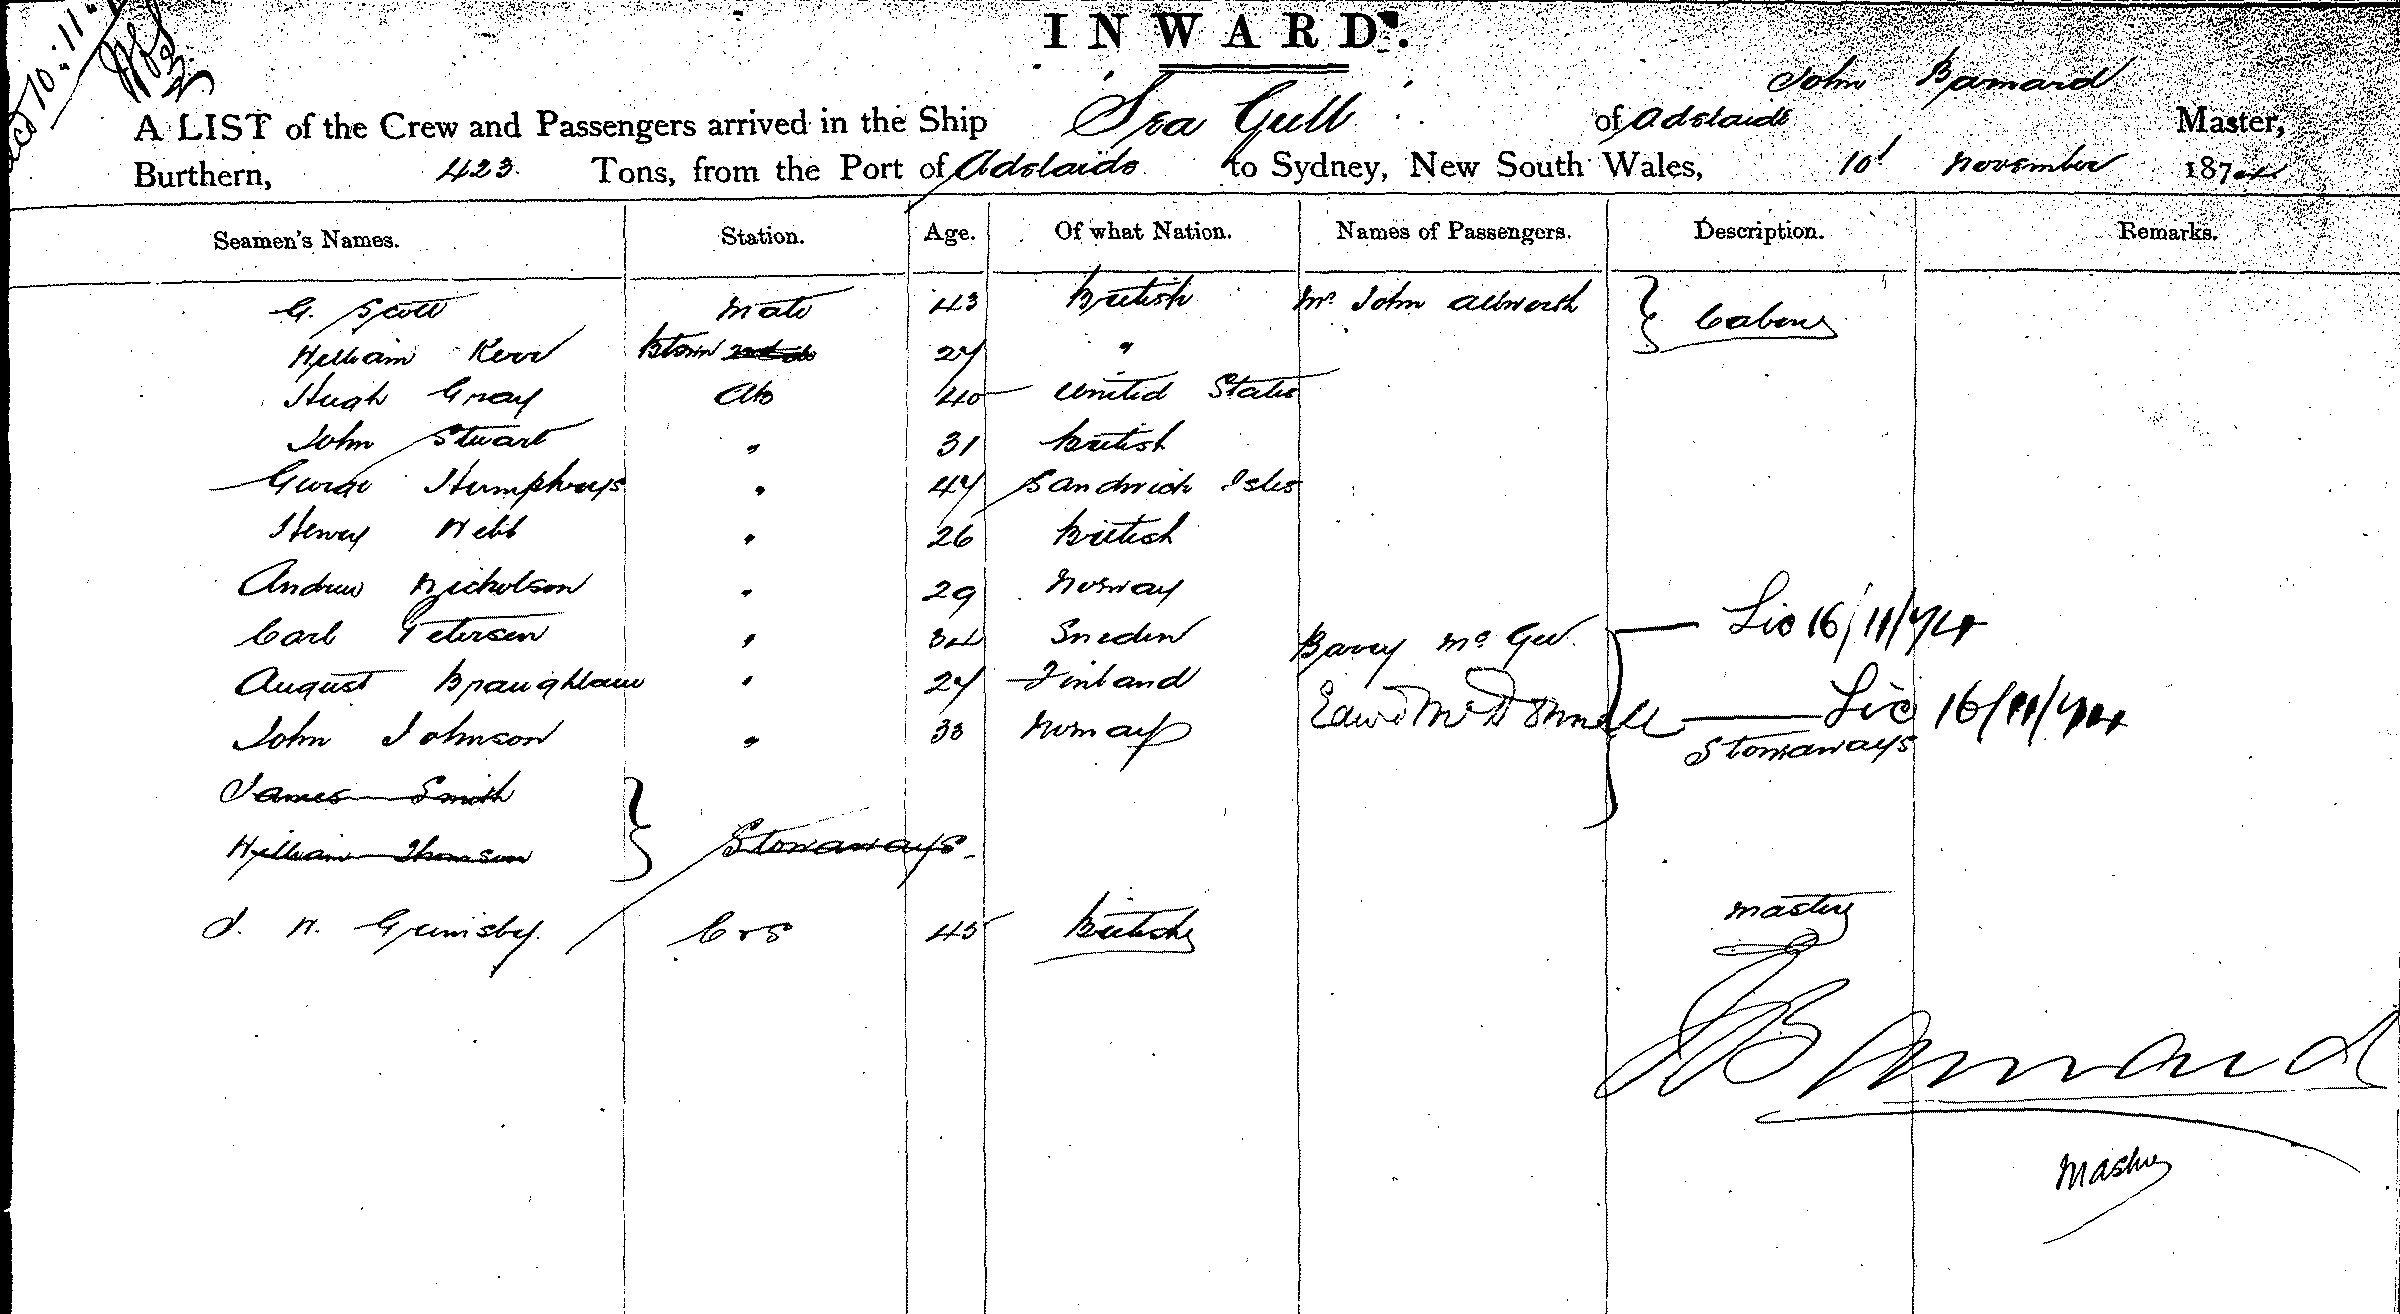 INWARD.
John Barnard
A LIST of the Crew and Passengers arrived in the Ship Sea Gull of Adelaide Master,
Burthern, 423 Tons, from the Port of Adelaide to Sydney, New South Wales, 10 November 1874
Seamen's Names. Station. Age. Of what Nation. Names of Passengers. Description. Remarks.
G. Scott Mate 43 British Mr John Allworth } Cabin
William Kerr 27 "
Hugh Gray AB 40 United States
John Stuart " 31 British
George Humphreys " 47 Sandwich Isles
Henry Webb " 26 British
Andrew Nicholson " 29 Norway
Carl Petersen " 34 Sweden Barry McGee — Lic 16/11/74
August " 27 Finland
Edwd McDonnell — Lic 16/11/74
John Johnson " 33 Norway Stowaways
James Smith
William Thomson } Stowaways
J. W. Grimsby 45 British
Master
J Barnard
Master